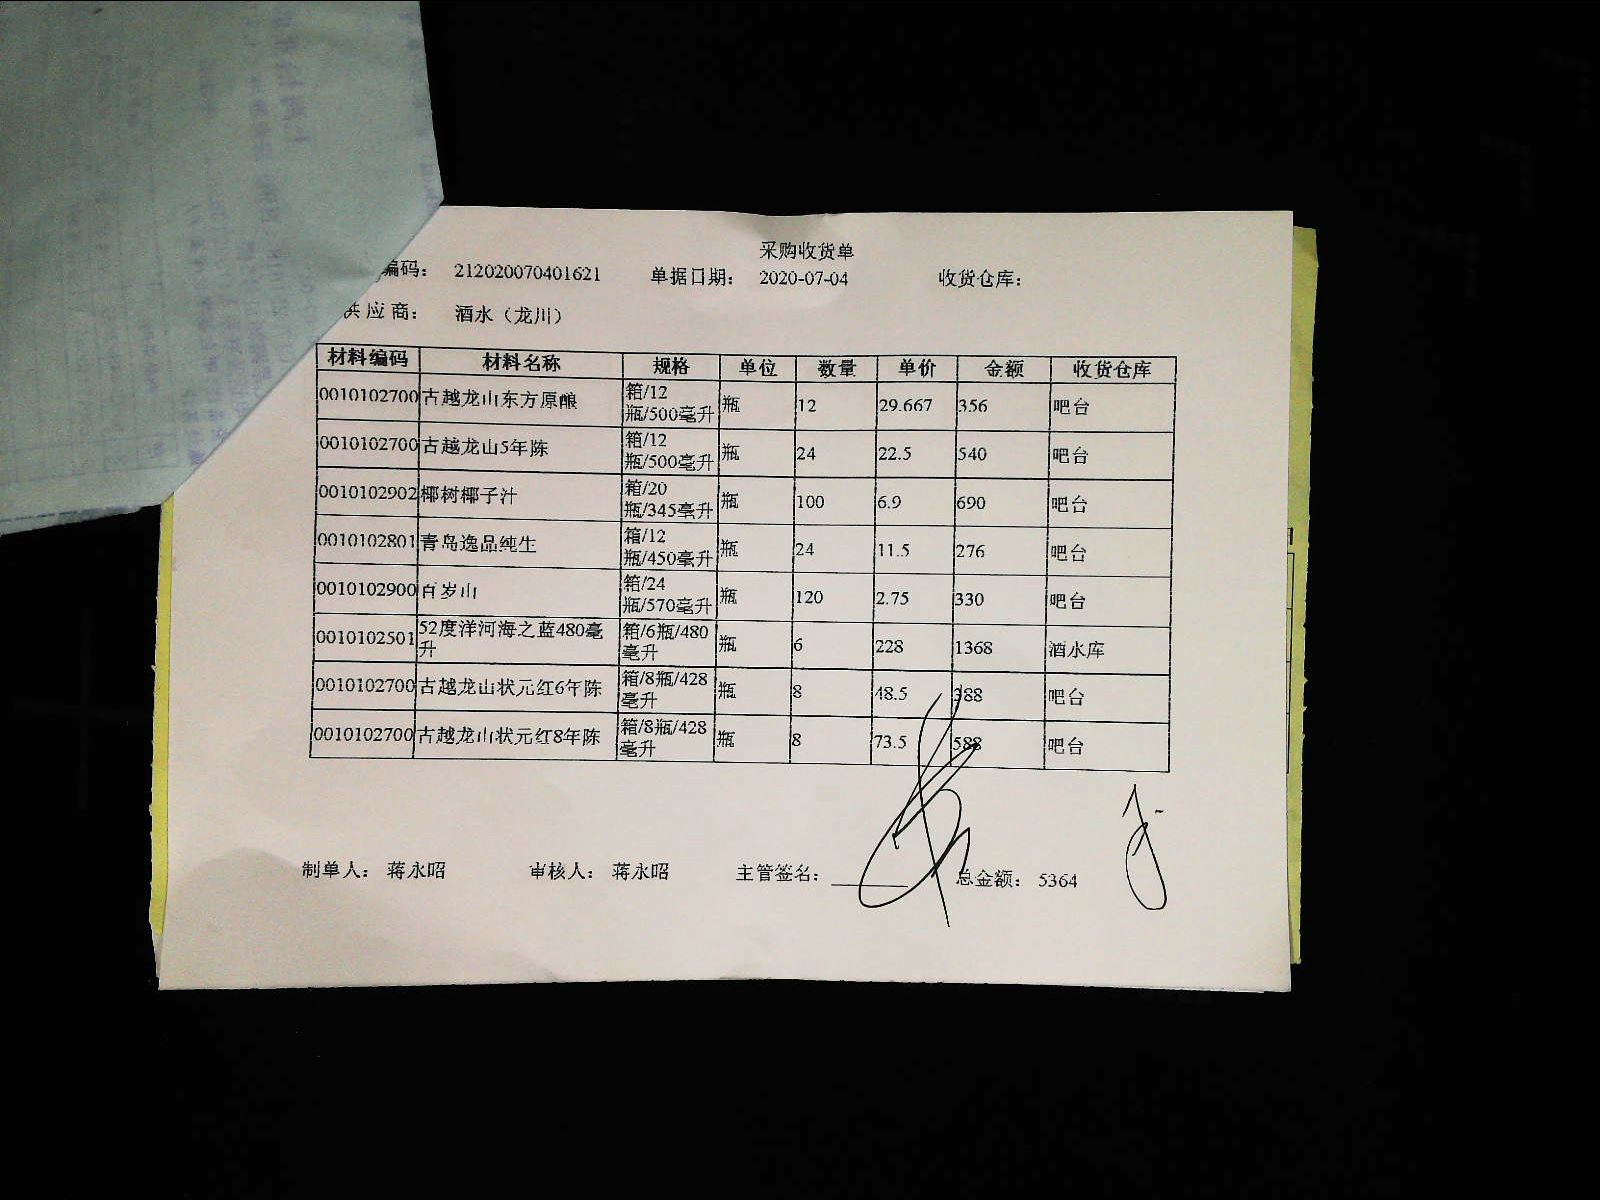 采购收货单
编码： 212020070401621 单据日期： 2020-07-04 收货仓库：
供应商： 酒水（龙川）
材料编码 材料名称 规格 单位 数量 单价 金额 收货仓库
0010102700 古越龙山东方原酿 箱/12瓶/500毫升 瓶 12 29.667 356 吧台
0010102700 古越龙山5年陈 箱/12瓶/500毫升 瓶 24 22.5 540 吧台
0010102902 椰树椰子汁 箱/20瓶/345毫升 瓶 100 6.9 690 吧台
0010102801 青岛逸品纯生 箱/12瓶/450毫升 瓶 24 11.5 276 吧台
0010102900 百岁山 箱/24瓶/570毫升 瓶 120 2.75 330 吧台
0010102501 52度洋河海之蓝480毫升 箱/6瓶/480毫升 瓶 6 228 1368 酒水库
0010102700 古越龙山状元红6年陈 箱/8瓶/428毫升 瓶 8 48.5 388 吧台
0010102700 古越龙山状元红8年陈 箱/8瓶/428毫升 瓶 8 73.5 588 吧台
制单人： 蒋永昭 审核人： 蒋永昭 主管签名： 总金额： 5364